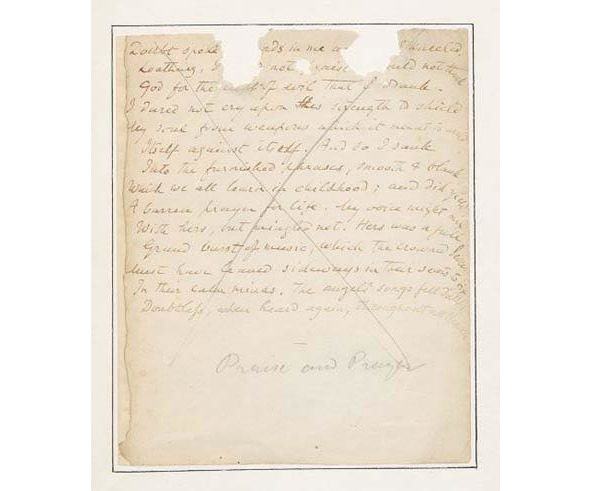 Doubt spoke ds in me kneeled
Loathing, I not praise could not thank
God for the of evil that I drank.
I dared not cry upon His strength to shield
My soul from weapons which it meant to
Itself against itself. And so I sank
Into the furnished phrases, smooth & blank
Which we all learn in childhood; and did yield
A barren prayer for life. My voice might mix
With hers, but mingled not. Hers was a full
Grand burst of music, which the crowned
Must have leaned sideways in their seats to fix
In their calm minds. The angels' songs fell dull
Doubtless, when heard again, throughout
Praise and Prayer